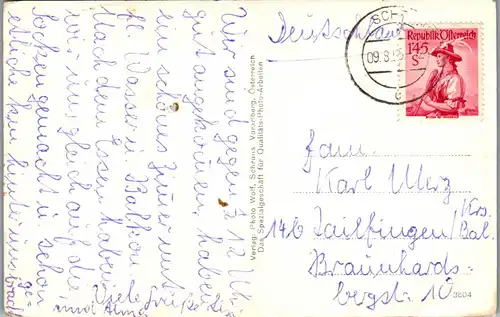 Wir sind gegen ½ 12 Uhr
gut angekommen, haben
ein schönes Zimmer mit
fl. Wasser u. Balkon.
Nach dem Essen haben
wir uns gleich auf die
Socken gemacht u. schon
etlich km hinter uns
ge-
bracht
Viele Grüße
und Alma
Verlag: Photo Wolf, Schruns, Vorarlberg, Österreich
Das Spezialgeschäft für Qualitäts-Photo-Arbeiten
Deutschland
SCH
09.8.5
c
Republik Österreich
1.45
S
Fam.
Karl
14b Tailfingen/Krs.
Bal.
Braunhards-
bergstr. 10
3604